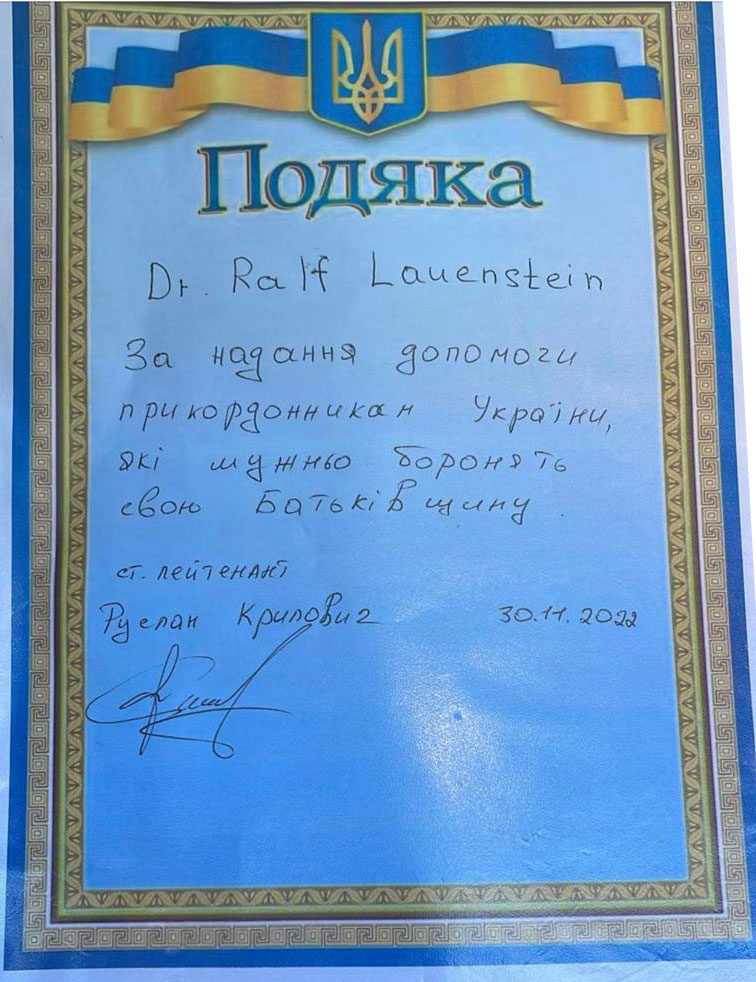 Подяка
Dr. Ralf Lauenstein
За надання допомоги
прикордонникам України,
які мужньо боронять
свою Батьківщину.
ст. лейтенант
Руслан Крилович
30.11.2022